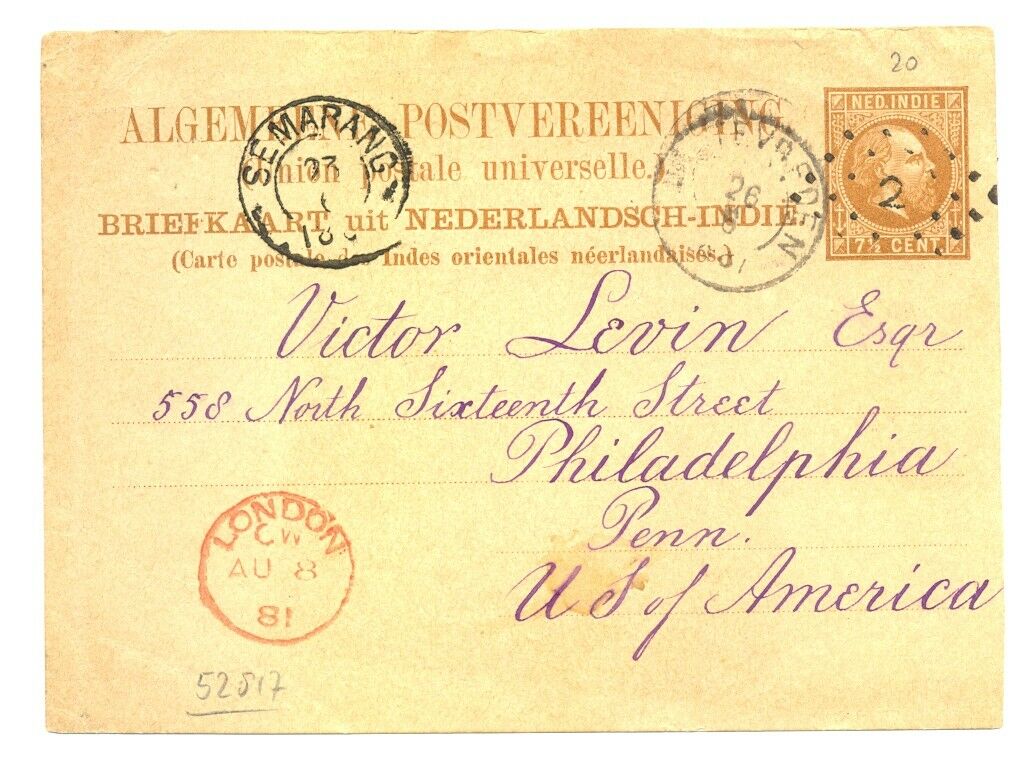 20
ALGEMEENE POSTVEREENIGING
NED. INDIE
(Union postale universelle.)
BRIEFKAART uit NEDERLANDSCH-INDIE
7½ CENT.
(Carte postale des Indes orientales néerlandaises.)
SEMARANG
23
WELTEVREDEN
26
2
Victor Levin Esqr
558 North Sixteenth Street
Philadelphia
Penn.
U S of America
LONDON
CW
AU 8
81
52517